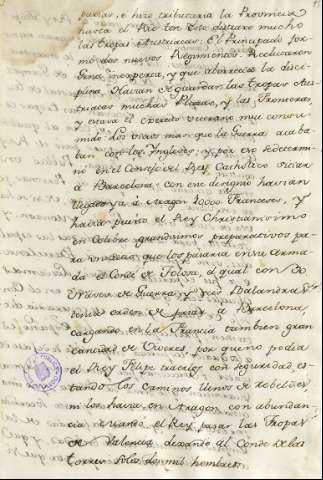 purias, è hizo tributaria la Provincia
hasta el Rio Ter. Esto distraxo mucho
las tropas Austriacas: El Principado for
mó dos nuevos Regimientos. Reclutaron
Gente inexperta, y que aborrecia la disci
plina. Havian de guardar las tropas Aus
triacas muchas Plazas, y las Fronteras,
y estava el exercito veterano muy consu
mido. Los viages mas que la Guerra acaba
ban con los Yngleses, y por eso determi
nó en el Consejo del Rey Catholico sitiar
à Barcelona, con ese designio havian
llegado ya à Aragon 10000 Franceses, y
havia puesto el Rey Christianisimo
en Octubre grandisimos preparativos pa
ra un sitio, que los pasaria en su Arma
da el Conde de Tolosa, el qual con 30
Navios de Guerra, y tres Balandras
tenido orden de pasar à Barcelona,
cargando en la Francia tambien gran
cantidad de Viveres, porque no podia
el Rey Felipe traerlos con seguridad, es
tando los caminos llenos de Rebeldes,
ni los havia en Aragon con abundan
cia. Quando, el Rey pasar las Tropas
de Valencia, dexando al Conde de las
Torres solos dos mil hombres.